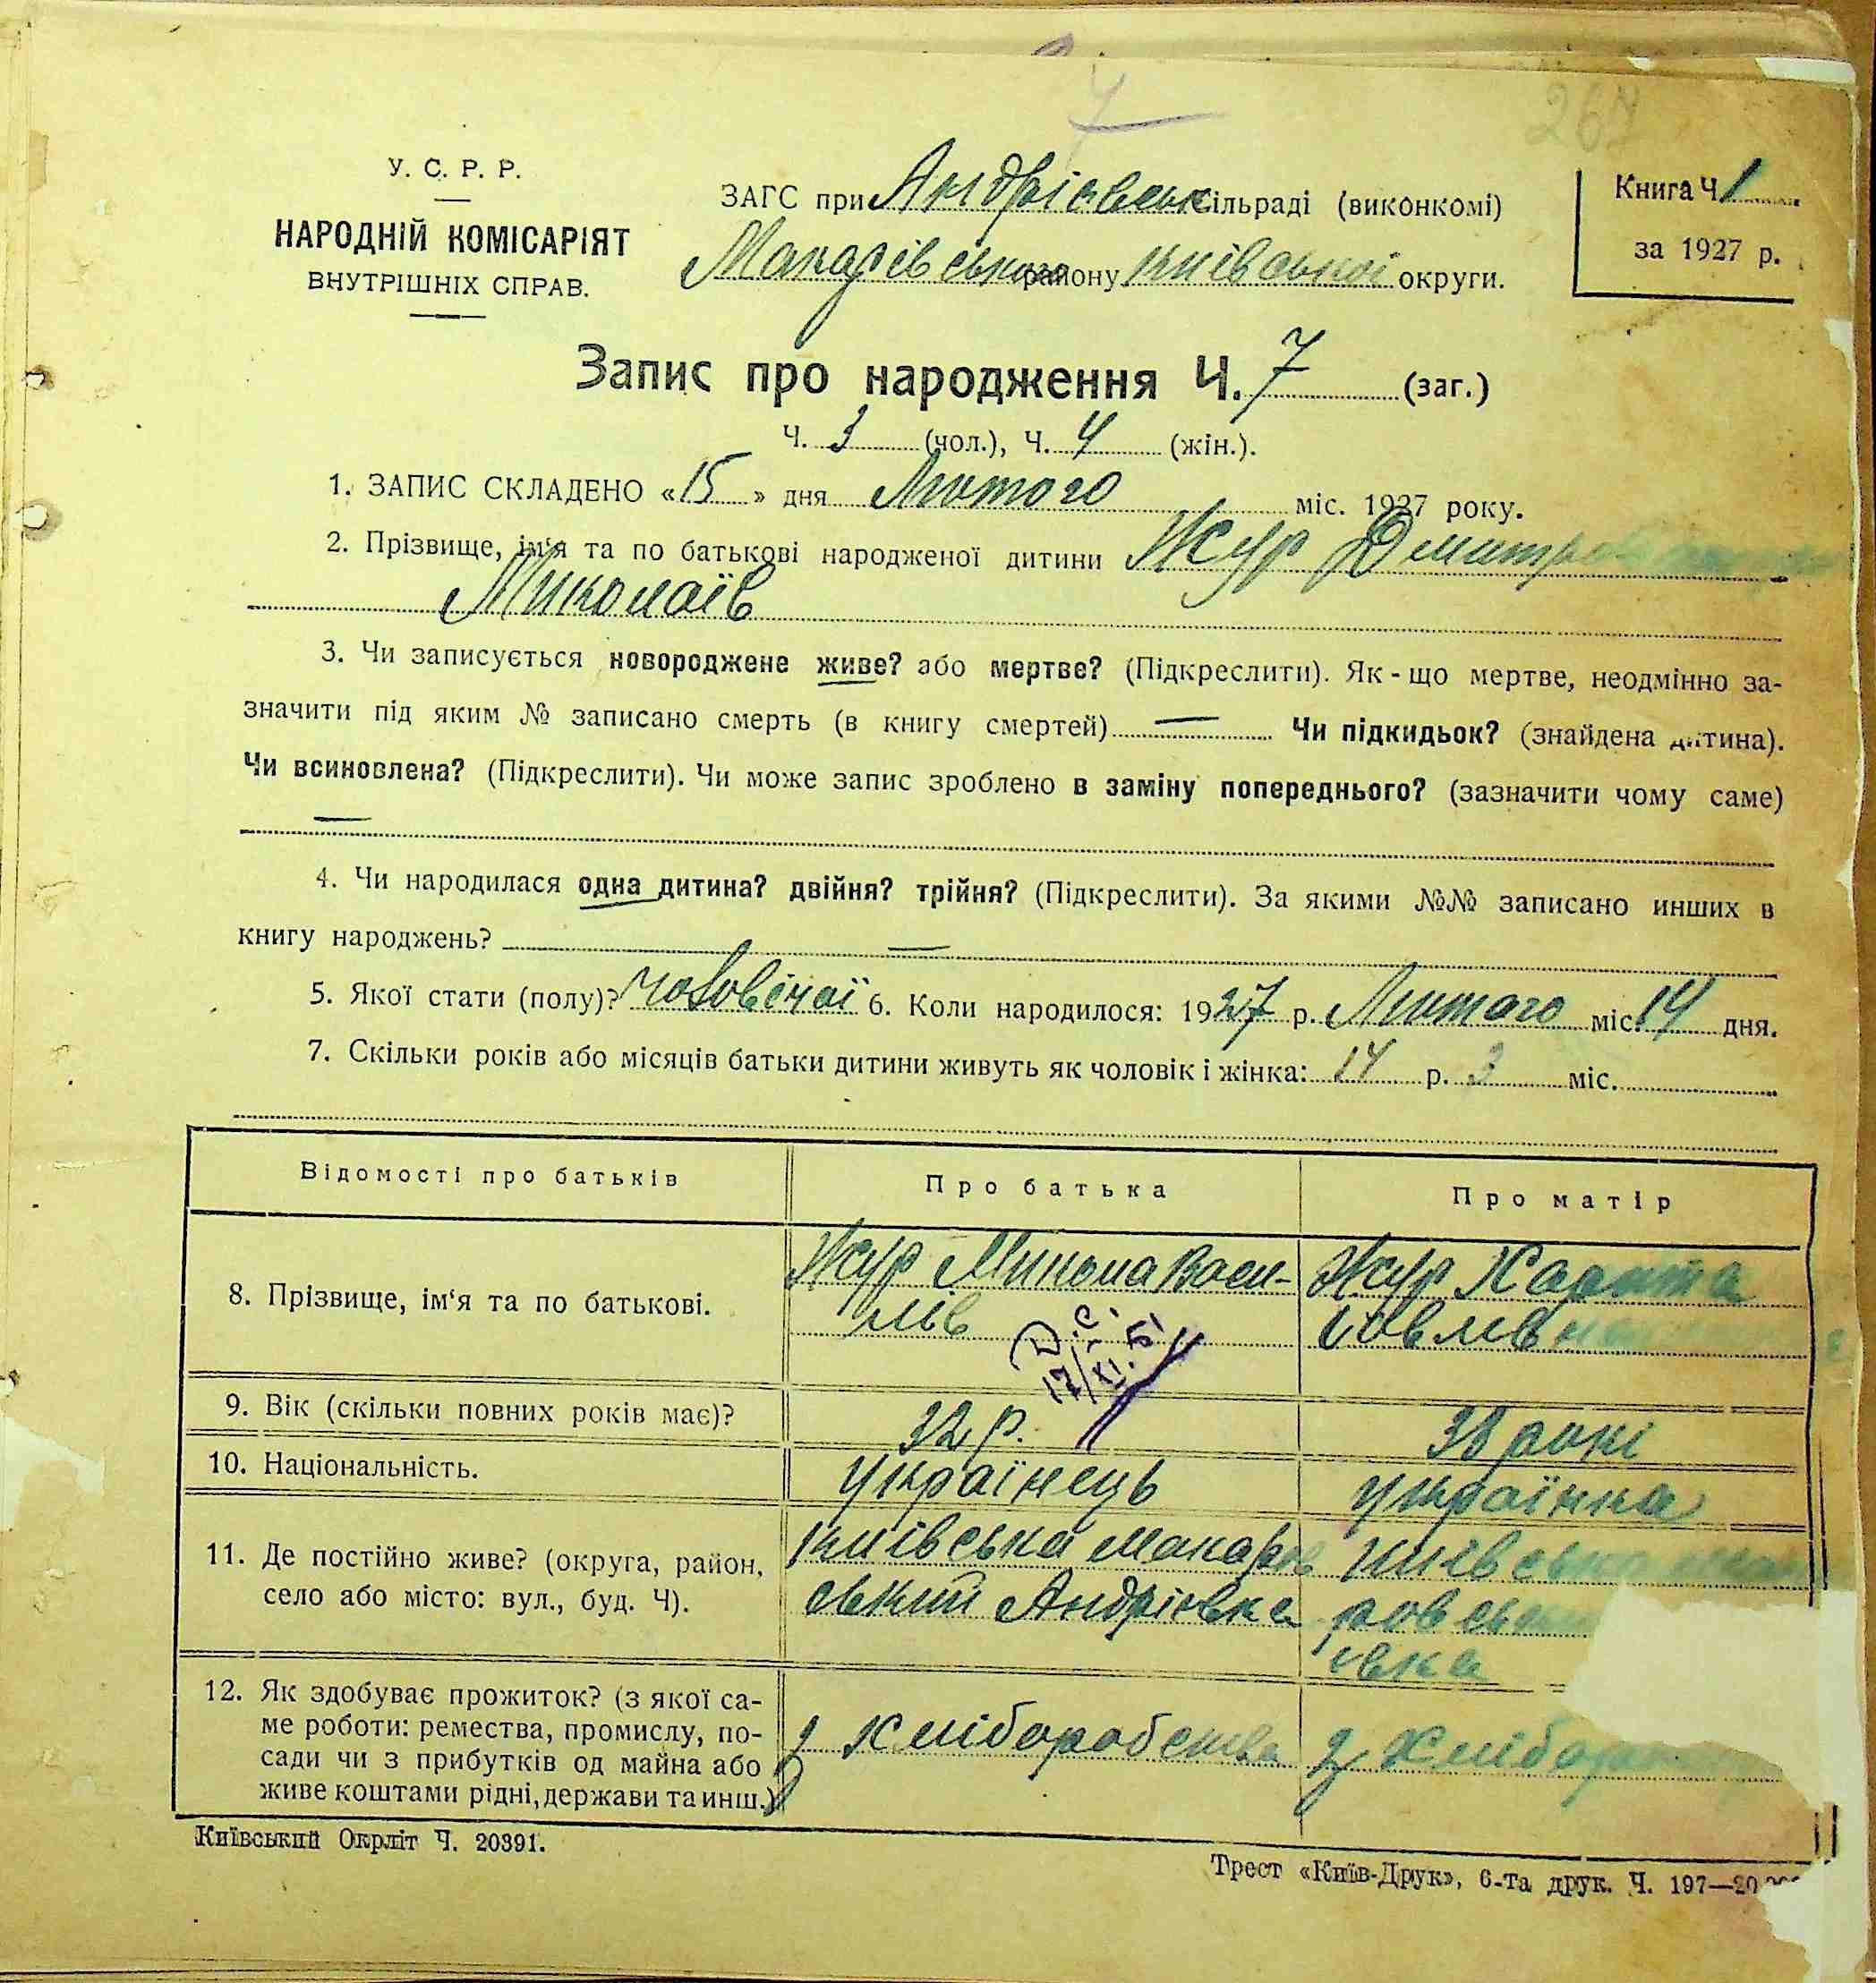 7
267
У. С. Р. Р.
НАРОДНІЙ КОМІСАРІЯТ
ВНУТРІШНІХ СПРАВ.
ЗАГС при Андрієвськ сільраді (виконкомі)
Макарівського району Київської округи.
Книга Ч. 1
за 1927 р.
Запис про народження Ч. 7 (заг.)
Ч. 3 (чол.), Ч. 4 (жін.).
1. ЗАПИС СКЛАДЕНО «15» дня Лютого міс. 1927 року.
2. Прізвище, ім'я та по батькові народженої дитини Жур Дмитро
Миколаїв
3. Чи записується новороджене живе? або мертве? (Підкреслити). Як-що мертве, неодмінно за-
значити під яким № записано смерть (в книгу смертей) — Чи підкидьок? (знайдена дитина).
Чи всиновлена? (Підкреслити). Чи може запис зроблено в заміну попереднього? (зазначити чому саме)
—
4. Чи народилася одна дитина? двійня? трійня? (Підкреслити). За якими №№ записано инших в
книгу народжень? —
5. Якої стати (полу)? чоловічої 6. Коли народилося: 1927 р. Лютого міс. 14 дня.
7. Скільки років або місяців батьки дитини живуть як чоловік і жінка: 14 р. 3 міс.
Відомості про батьків Про батька Про матір
8. Прізвище, ім'я та по батькові. Жур Микола Васи-
лів
Жур
9. Вік (скільки повних років має)? 32 р. 38 рокі
10. Національність. Українець Українка
11. Де постійно живе? (округа, район,
село або місто: вул., буд. Ч).
Київська Макаров
ський Андрієвка
івка
12. Як здобуває прожиток? (з якої са-
ме роботи: ремества, промислу, по-
сади чи з прибутків од майна або
живе коштами рідні, держави та инш.)
з хліборобства
з
Київський Окрліт Ч. 20391.
Трест «Київ-Друк», 6-та друк. Ч. 197—20